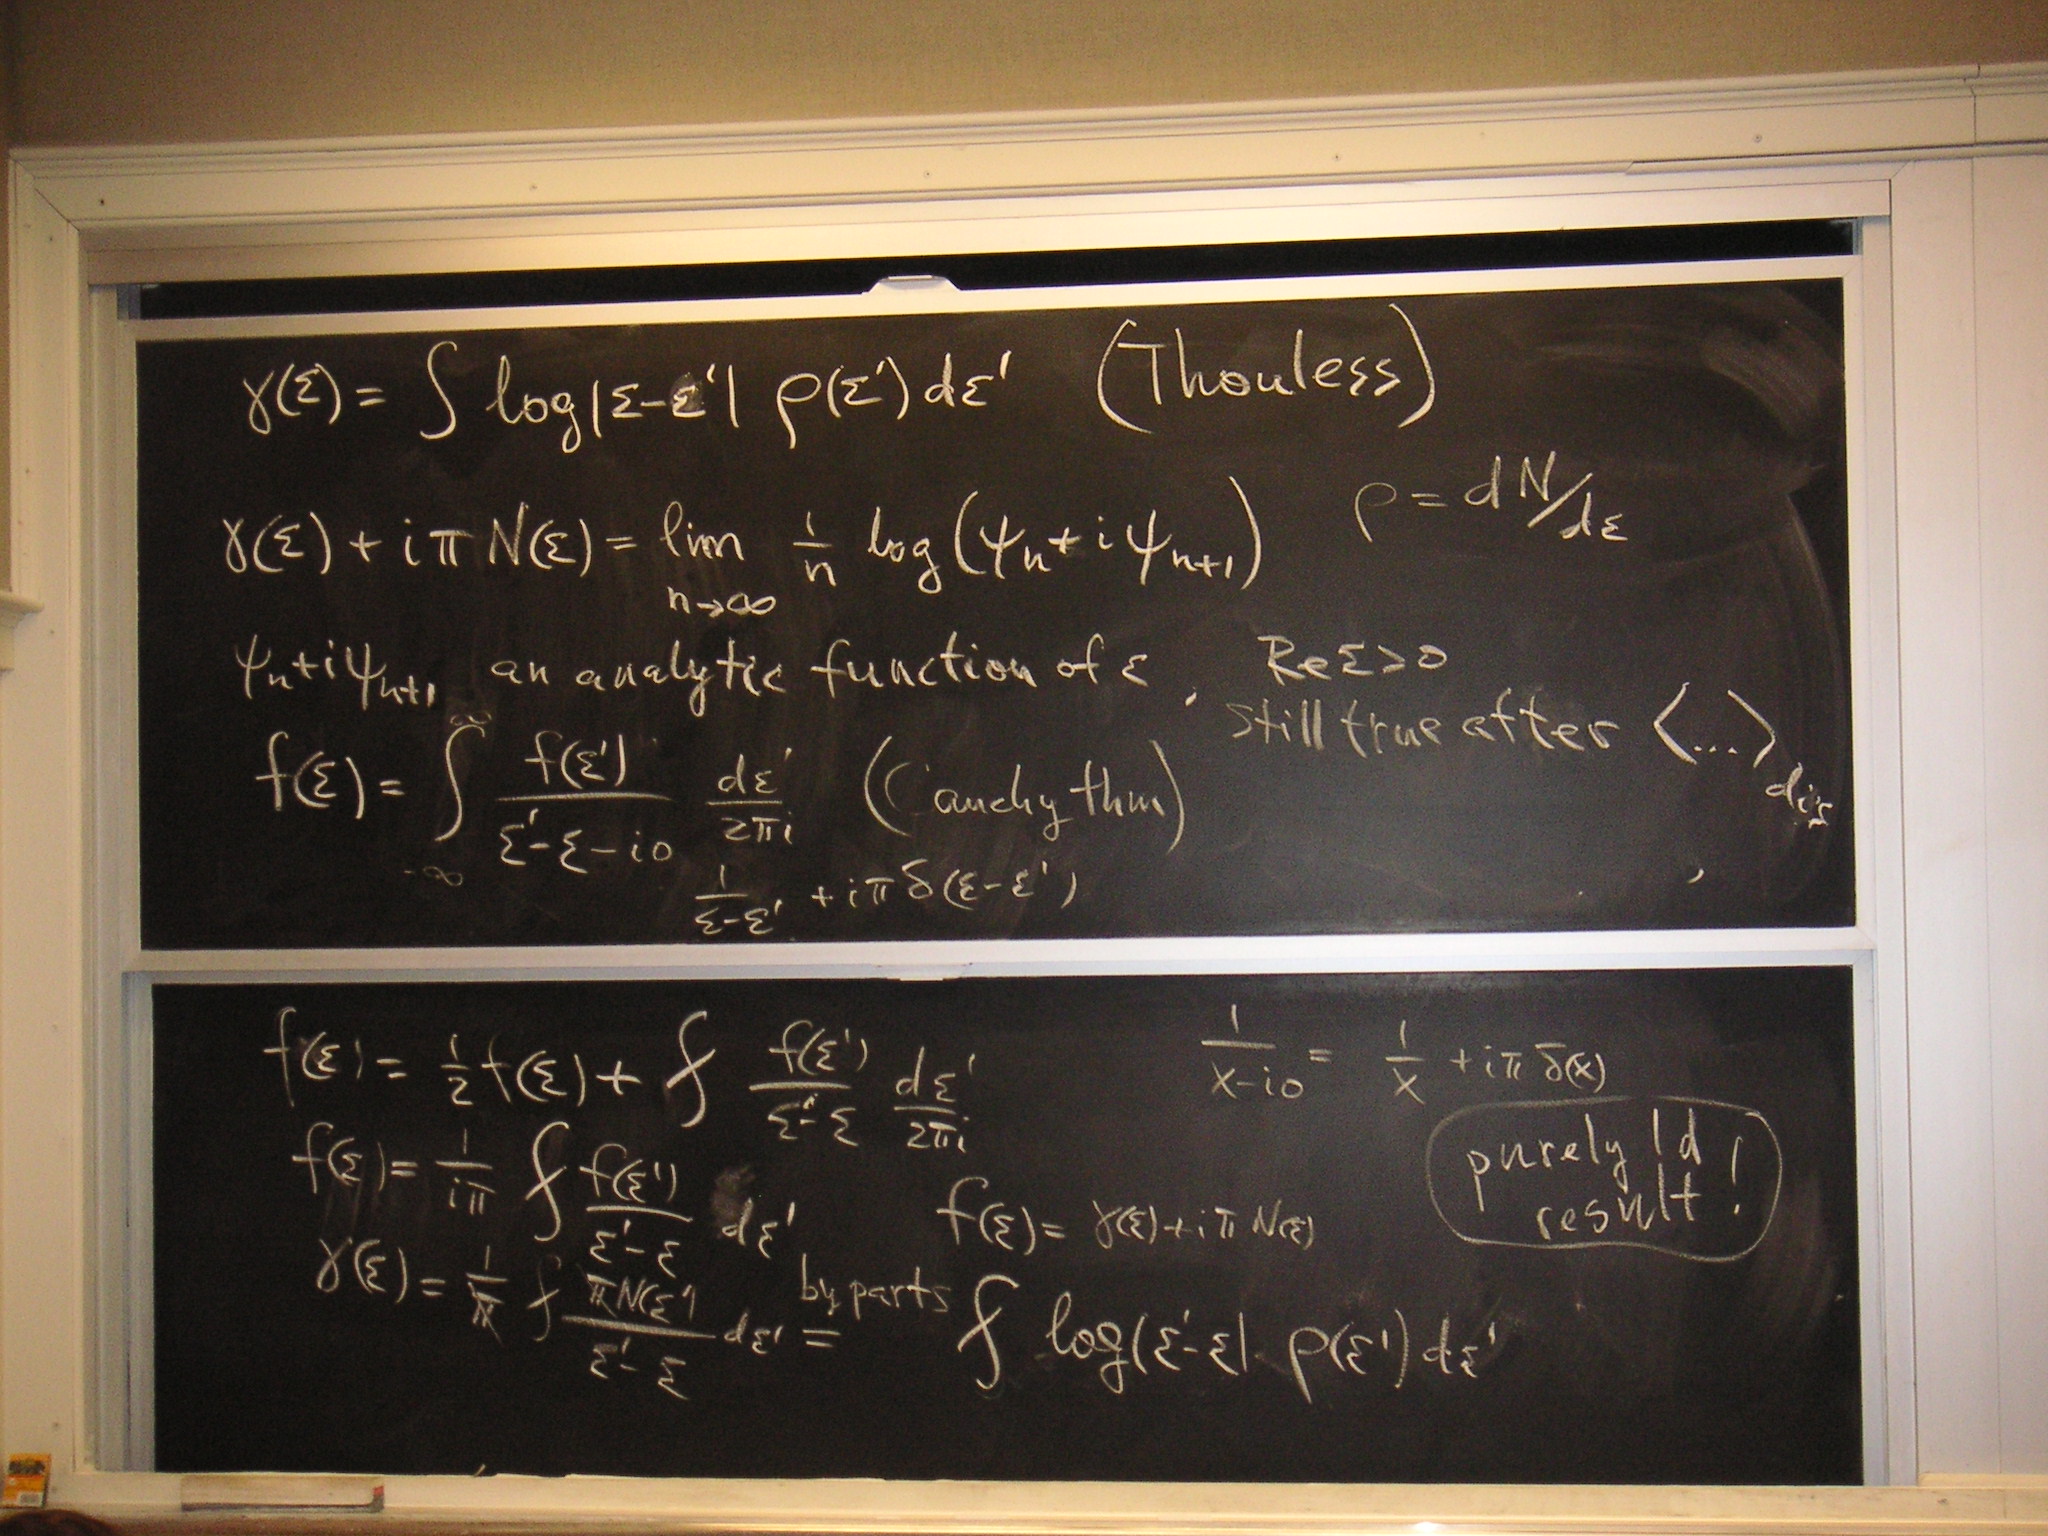 γ(ε) = ∫ log|ε-ε'| ρ(ε') dε' (Thouless)
ρ = dN/dε
γ(ε) + iπN(ε) = lim n→∞ 1/n log(ψn + iψn+1)
ψn+iψn+1 an analytic function of ε, Re ε > 0
still true after <...>dis
f(ε) = ∫_{-∞}^{∞} f(ε')/(ε'-ε-i0) dε'/2πi (Cauchy thm)
1/(ε-ε') + iπδ(ε-ε')
f(ε) = 1/2 f(ε) + ⨍ f(ε')/(ε'-ε) dε'/2πi
1/(x-i0) = 1/x + iπδ(x)
f(ε) = 1/iπ ⨍ f(ε')/(ε'-ε) dε'
f(ε) = γ(ε)+iπN(ε)
purely 1d
result!
γ(ε) = 1/π ⨍ πN(ε')/(ε'-ε) dε' = by parts ⨍ log|ε'-ε| ρ(ε') dε'